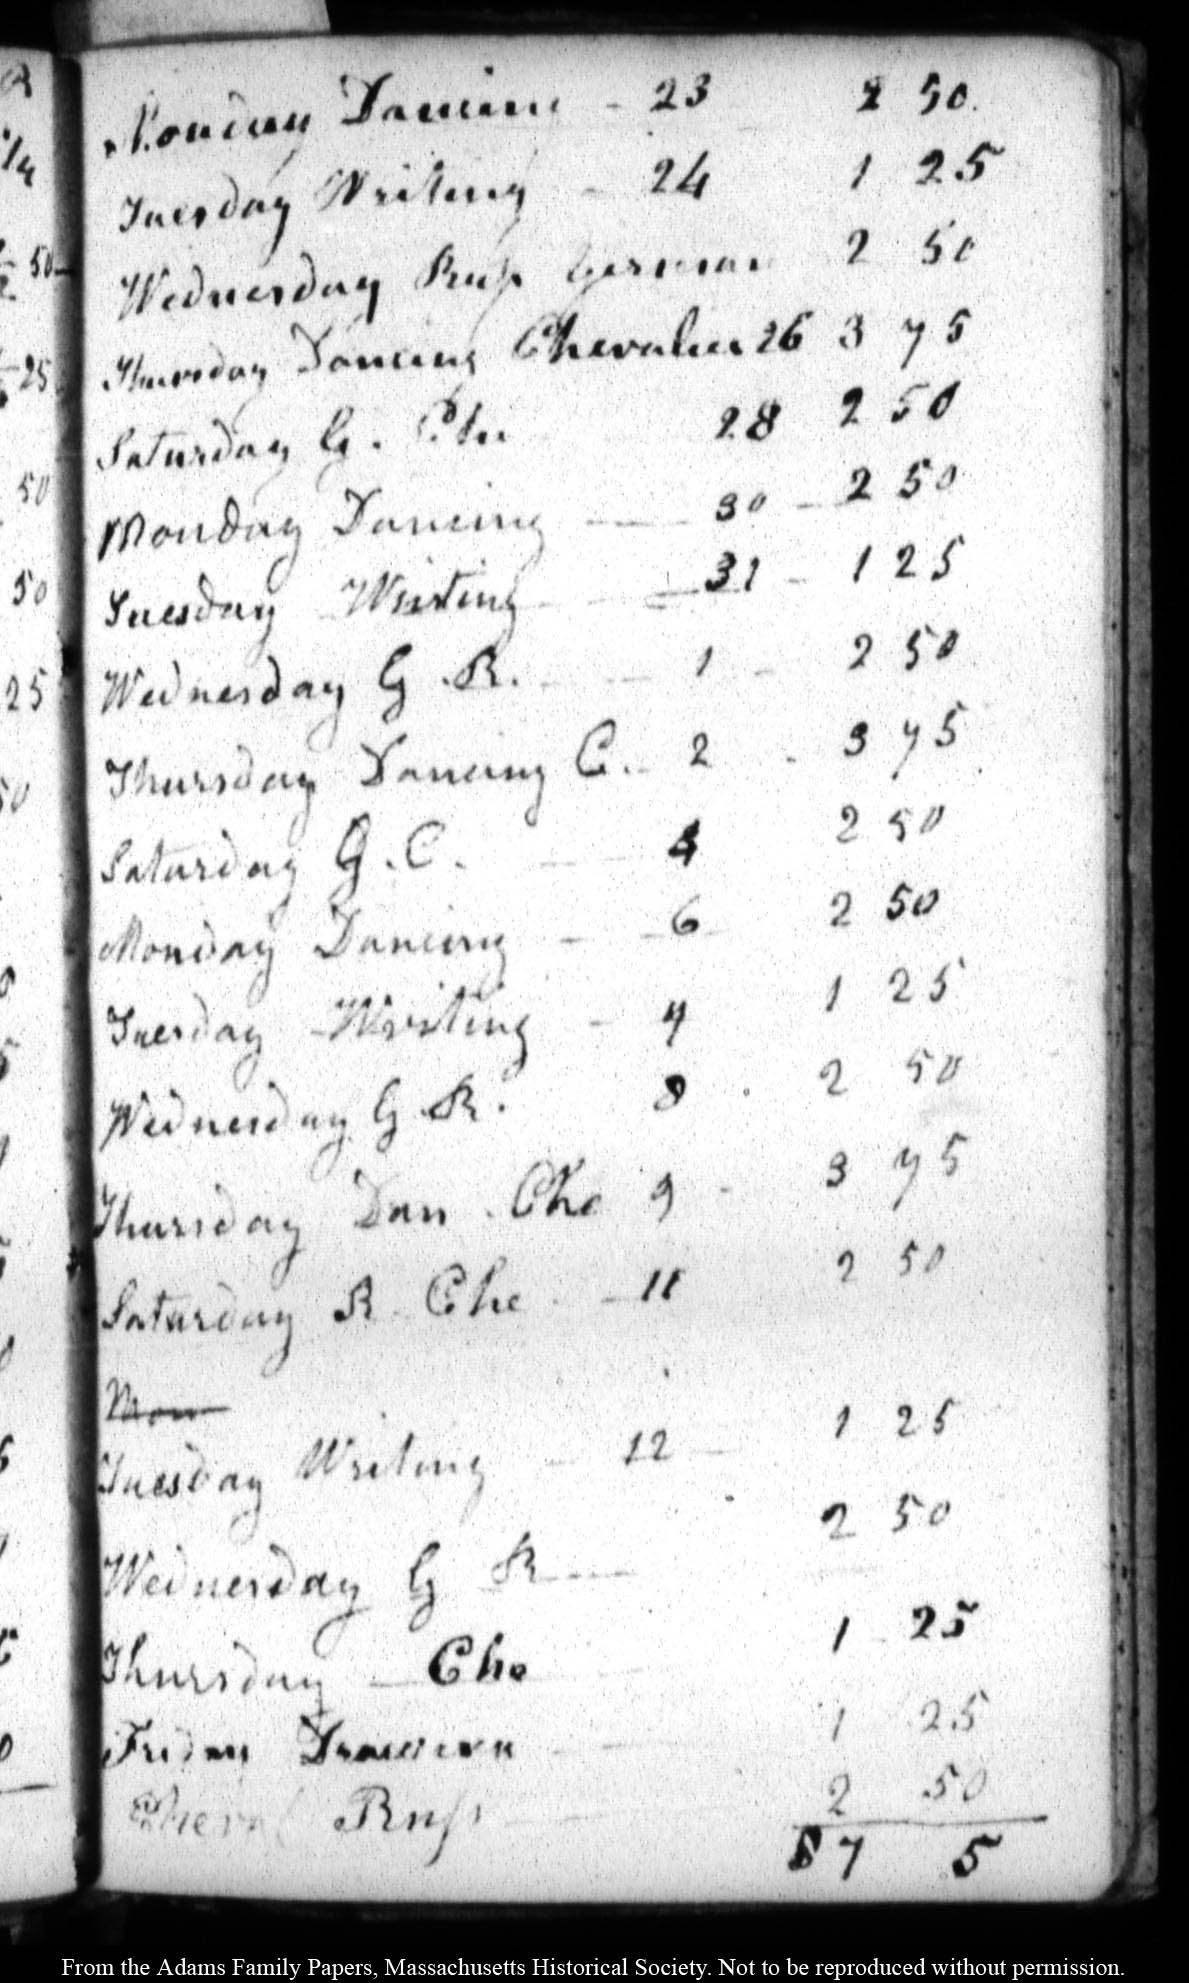 Monday Dancing - 23 2 50.
Tuesday Writing - 24 1 25
Wednesday Russ German 2 50
Thursday Dancing Chevalier 26 3 75
Saturday G. Che 28 2 50
Monday Dancing - 30 - 2 50
Tuesday Writing - 31 - 1 25
Wednesday G. R. - 1 - 2 50
Thursday Dancing C. - 2 - 3 75
Saturday G. C. - 4 2 50
Monday Dancing - 6 2 50
Tuesday Writing - 7 1 25
Wednesday G R. 8 . 2 50
Thursday Dan . Che 9 - 3 75
Saturday R Che - 11 2 50
Mon
Tuesday Writing - 12 - 1 25
Wednesday G R - 2 50
Thursday - Che 1 25
Friday Drawing - 1 25
Russ 2 50
7 5
50
25
50
50
25
From the Adams Family Papers, Massachusetts Historical Society. Not to be reproduced without permission.